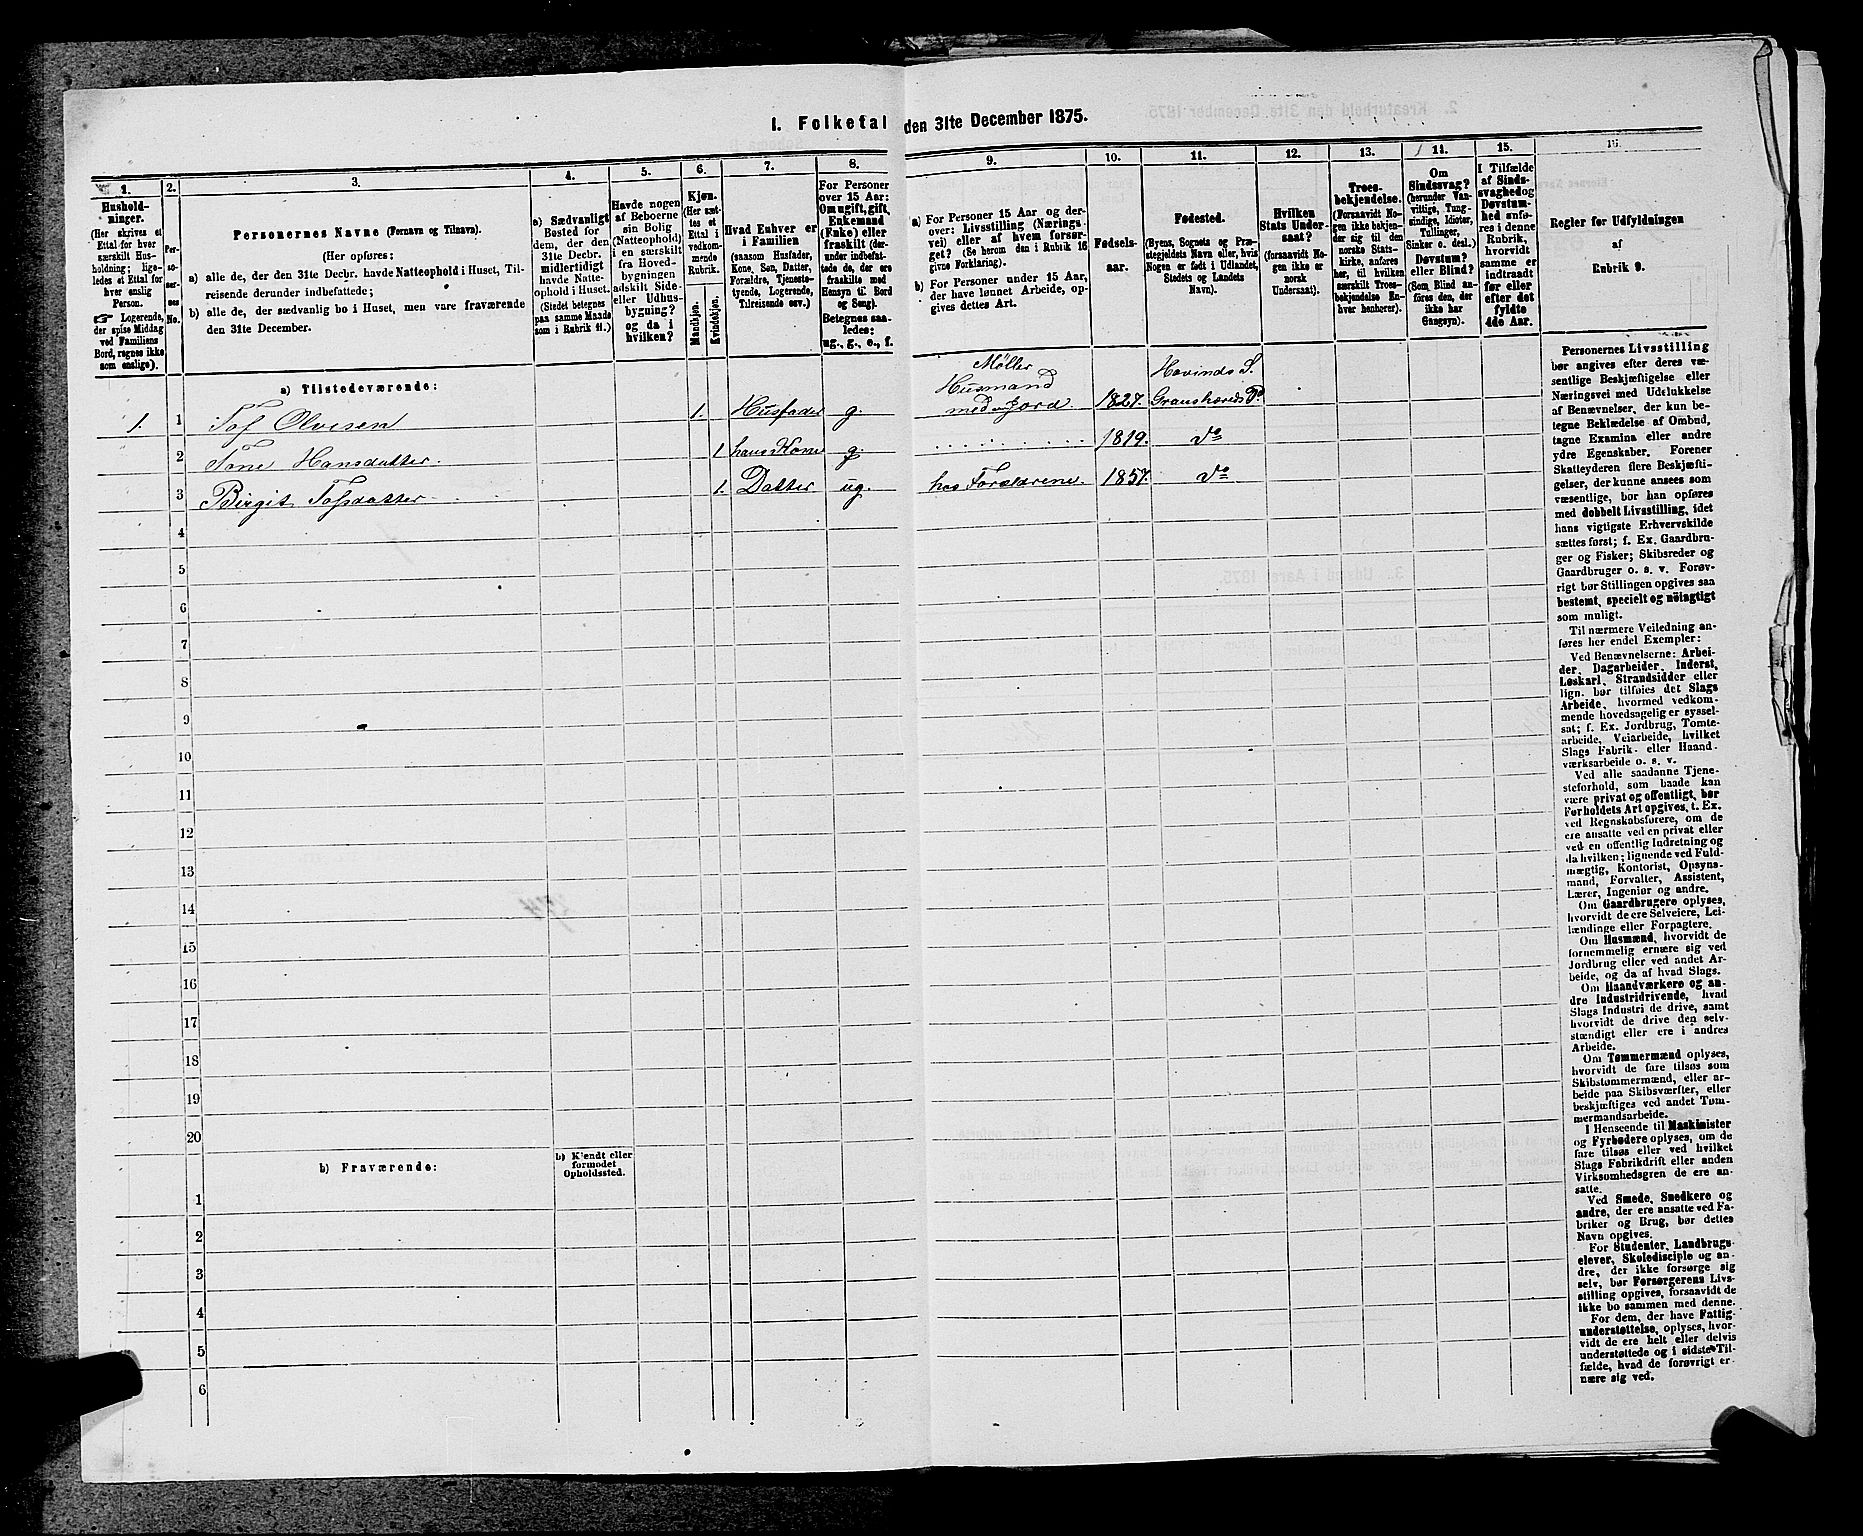 1. Folketal den 31te December 1875.
1.
Hushold-
ninger.
(Her skrives et
Ettal for hver
særskilt Hus-
holdning; lige-
ledes et Ettal for
hver enslig
Person.
☞ Logerende,
der spise Middag
ved Familiens
Bord, regnes ikke
som enslige).
2.
Per-
so-
ner-
nes
No.
3.
Personernes Navne (Fornavn og Tilnavn).
(Her opføres:
a) alle de, der den 31te Decbr. havde Natteophold i Huset, Til-
reisende derunder indbefattede;
b) alle de, der sædvanlig bo i Huset, men vare fraværende
den 31te December.
4.
a) Sædvanligt
Bosted for
dem, der den
31te Decbr.
midlertidigt
havde Natte-
ophold i Huset.
(Stedet betegnes
paa samme Maade
som i Rubrik 11.)
5.
Havde nogen
af Beboerne
sin Bolig
(Natteophold)
i en særskilt
fra Hoved-
bygningen
adskilt Side-
eller Udhus-
bygning?
og da i
hvilken?
6.
Kjøn.
(Her sæt-
tes et
Ettal i
vedkom-
mende
Rubrik.
Mandkjøn.
Kvindekjøn.
7.
Hvad Enhver er
i Familien
(saasom Husfader,
Kone, Søn, Datter,
Forældre, Tjeneste-
tyende, Logerende,
Tilreisende osv.)
8.
For Personer
over 15 Aar:
Om ugift, gift,
Enkemand
(Enke) eller
fraskilt (der-
under indbefat-
tede de, der ere
fraskilte med
Hensyn til Bord
og Seng).
Betegnes saa-
ledes:
ug., g., e., f.
9.
a) For Personer 15 Aar og der-
over: Livsstilling (Nærings-
vei) eller af hvem forsør-
get? (Se herom den i Rubrik 16
givne Forklaring).
b) For Personer under 15 Aar,
der have lønnet Arbeide, op-
gives dettes Art.
10.
Fødsels-
aar.
11.
Fødested.
(Byens, Sognets og Præ-
stegjeldets Navn eller, hvis
Nogen er født i Udlandet,
Stedets og Landets
Navn).
12.
Hvilken
Stats Under-
saat?
(forsaavidt No-
gen ikke er
norsk
Undersaat).
13.
Troes-
bekjendelse.
(Forsaavidt No-
gen ikke bekjen-
der sig til den
norske Stats-
kirke, anføres
her, til hvilken
særskilt Troes-
bekjendelse En-
hver henhører).
14.
Om
Sindssvag?
(herunder Van-
vittige, Tung-
sindige, Idioter,
Tullinger,
Sinker o. desl.)
Døvstum?
eller Blind?
(Som Blind an-
føres den, der
ikke har
Gangsyn).
15.
I Tilfælde
af Sinds-
svaghed og
Døvstum-
hed anfø-
res i denne
Rubrik,
hvorvidt
samme er
indtraadt
før eller
efter det
fyldte
4de Aar.
16.
Regler før Udfyldningen
af
Rubrik 9.
a) Tilstedeværende:
1. 1 Tof Olvesen 1. Husfader g. Møller Husmand med Jord. 1827. Hovinds S. Gransherds P.
2 Tone Hansdatter 1 hans Kone g. 1819. do
3 Birgit Tofsdatter 1. Datter ug. hos Forældrene 1857. do
4
5
6
7
8
9
10
11
12
13
14
15
16
17
18
19
20
b) Fraværende:
b) Kjendt eller
formodet
Opholdssted.
1
2
3
4
5
6
Personernes Livsstilling
bør angives efter deres væ-
sentlige Beskjæftigelse eller
Næringsvei med Udelukkelse
af Benævnelser, der kun be-
tegne Beklædelse af Ombud,
tagne Examina eller andre
ydre Egenskaber. Forener
Skatteyderen flere Beskjæfti-
gelser, der kunne ansees som
væsentlige, bør han opføres
med dobbelt Livsstilling, idet
hans vigtigste Erhvervskilde
sættes først; f. Ex. Gaardbru-
ger og Fisker; Skibsreder og
Gaardbruger o. s. v. Forøv-
rigt bør Stillingen opgives saa
bestemt, specielt og nöiagtigt
som muligt.
Til nærmere Veiledning an-
føres her endel Exempler:
Ved Benævnelserne: Arbei-
der, Dagarbeider, Inderst,
Løskarl, Strandsidder eller
lign. bør tilføies det Slags
Arbeide, hvormed vedkom-
mende hovedsagelig er syssel-
sat; f. Ex. Jordbrug, Tomte-
arbeide, Veiarbeide, hvilket
Slags Fabrik- eller Haand-
værksarbeide o. s. v.
Ved alle saadanne Tjene-
steforhold, som baade kan
være privat og offentligt, bør
Førholdets Art opgives, f. Ex.
ved Regnskabsførere, om de
ere ansatte ved en privat eller
ved en offentlig Indretning og
da hvilken; lignende ved Fuld-
mægtig, Kontorist, Opsyns-
mand, Forvalter, Assistent,
Lærer, Ingeniør og andre.
Om Gaardbrugere oplyses,
hvorvidt de ere Selveiere, Lei-
lændinge eller Forpagtere.
Om Husmænd, hvorvidt de
fornemmelig ernære sig ved
Jordbrug eller ved andet Ar-
beide, og da af hvad Slags.
Om Haandværkere og an-
dre Industridrivende, hvad
Slags Industri de drive, samt
hvorvidt de drive den selv-
stændigt eller ere i andres
Arbeide.
Om Tømmermænd oplyses,
hvorvidt de fare tilsøs som
Skibstømmermænd, eller ar-
beide paa Skibsværfter, eller
beskjæftiges ved andet Tøm-
mermandsarbeide.
I Henseende til Maskinister
og Fyrbødere oplyses, om de
fare tilsøs eller ved hvilket
Slags Fabrikdrift eller anden
Virksomhedsgren de ere an-
satte.
Ved Smede, Snedkere og
andre, der ere ansatte ved Fa-
briker og Brug, bør dettes
Navn opgives.
For Studenter, Landbrugs-
elever, Skoledisciple og an-
dre, der ikke forsørge sig
selv, bør Forsørgerens Livs-
stilling opgives, forsaavidt de
ikke bo sammen med denne.
For dem, der have Fattig-
understøttelse, oplyses, hvor-
vidt de ere helt eller delvis
understøttede og i sidste Til-
fælde, hvad de forøvrigt er-
nære sig ved.